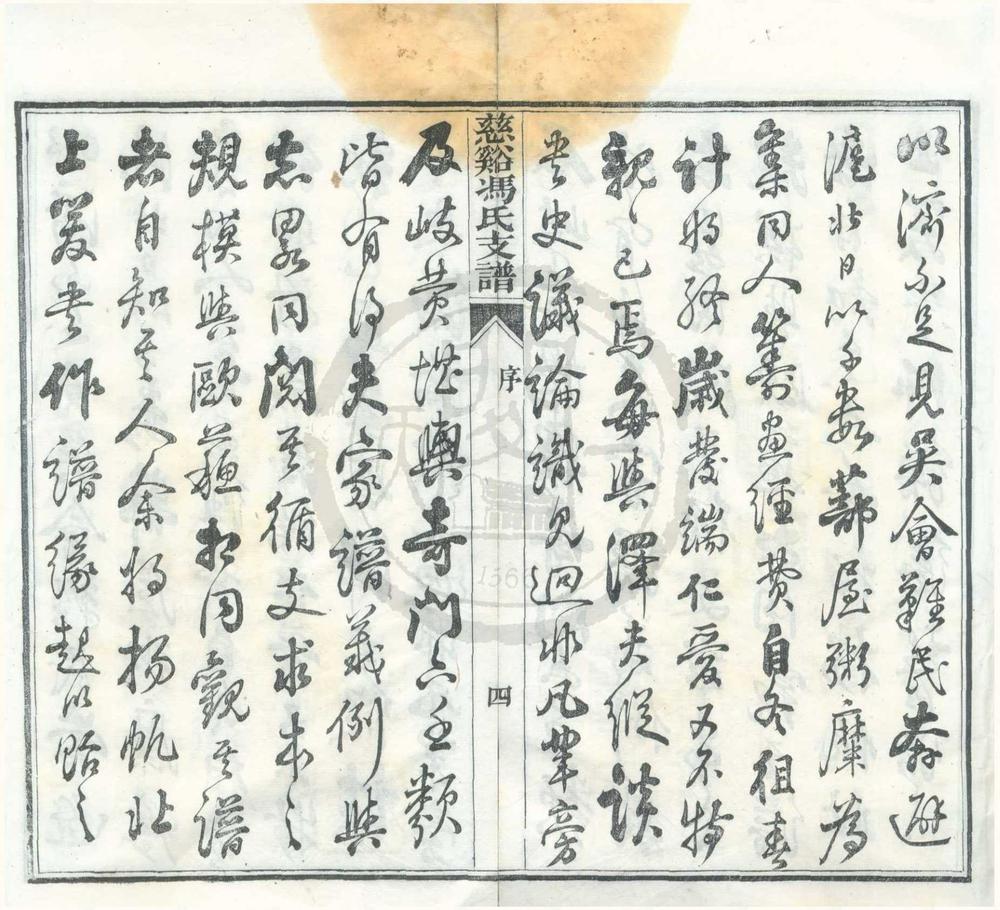 以濟不足見吳會難民奔避
滬北日以千数蔀屋粥糜為
集同人籌畫經費自冬徂春
計將終歲發端仁愛又不特
親親已焉每與澤夫縱談
書史議論識見迥非凡輩旁
慈谿馮氏支譜
序
四
及岐黄堪輿奇門六壬類
皆有得夫家譜義例與
志畧同閱其循支求本之
規模與歐蘇相同觀其譜
者自知其人余將揚帆北
上爰書作譜緣起以貽之